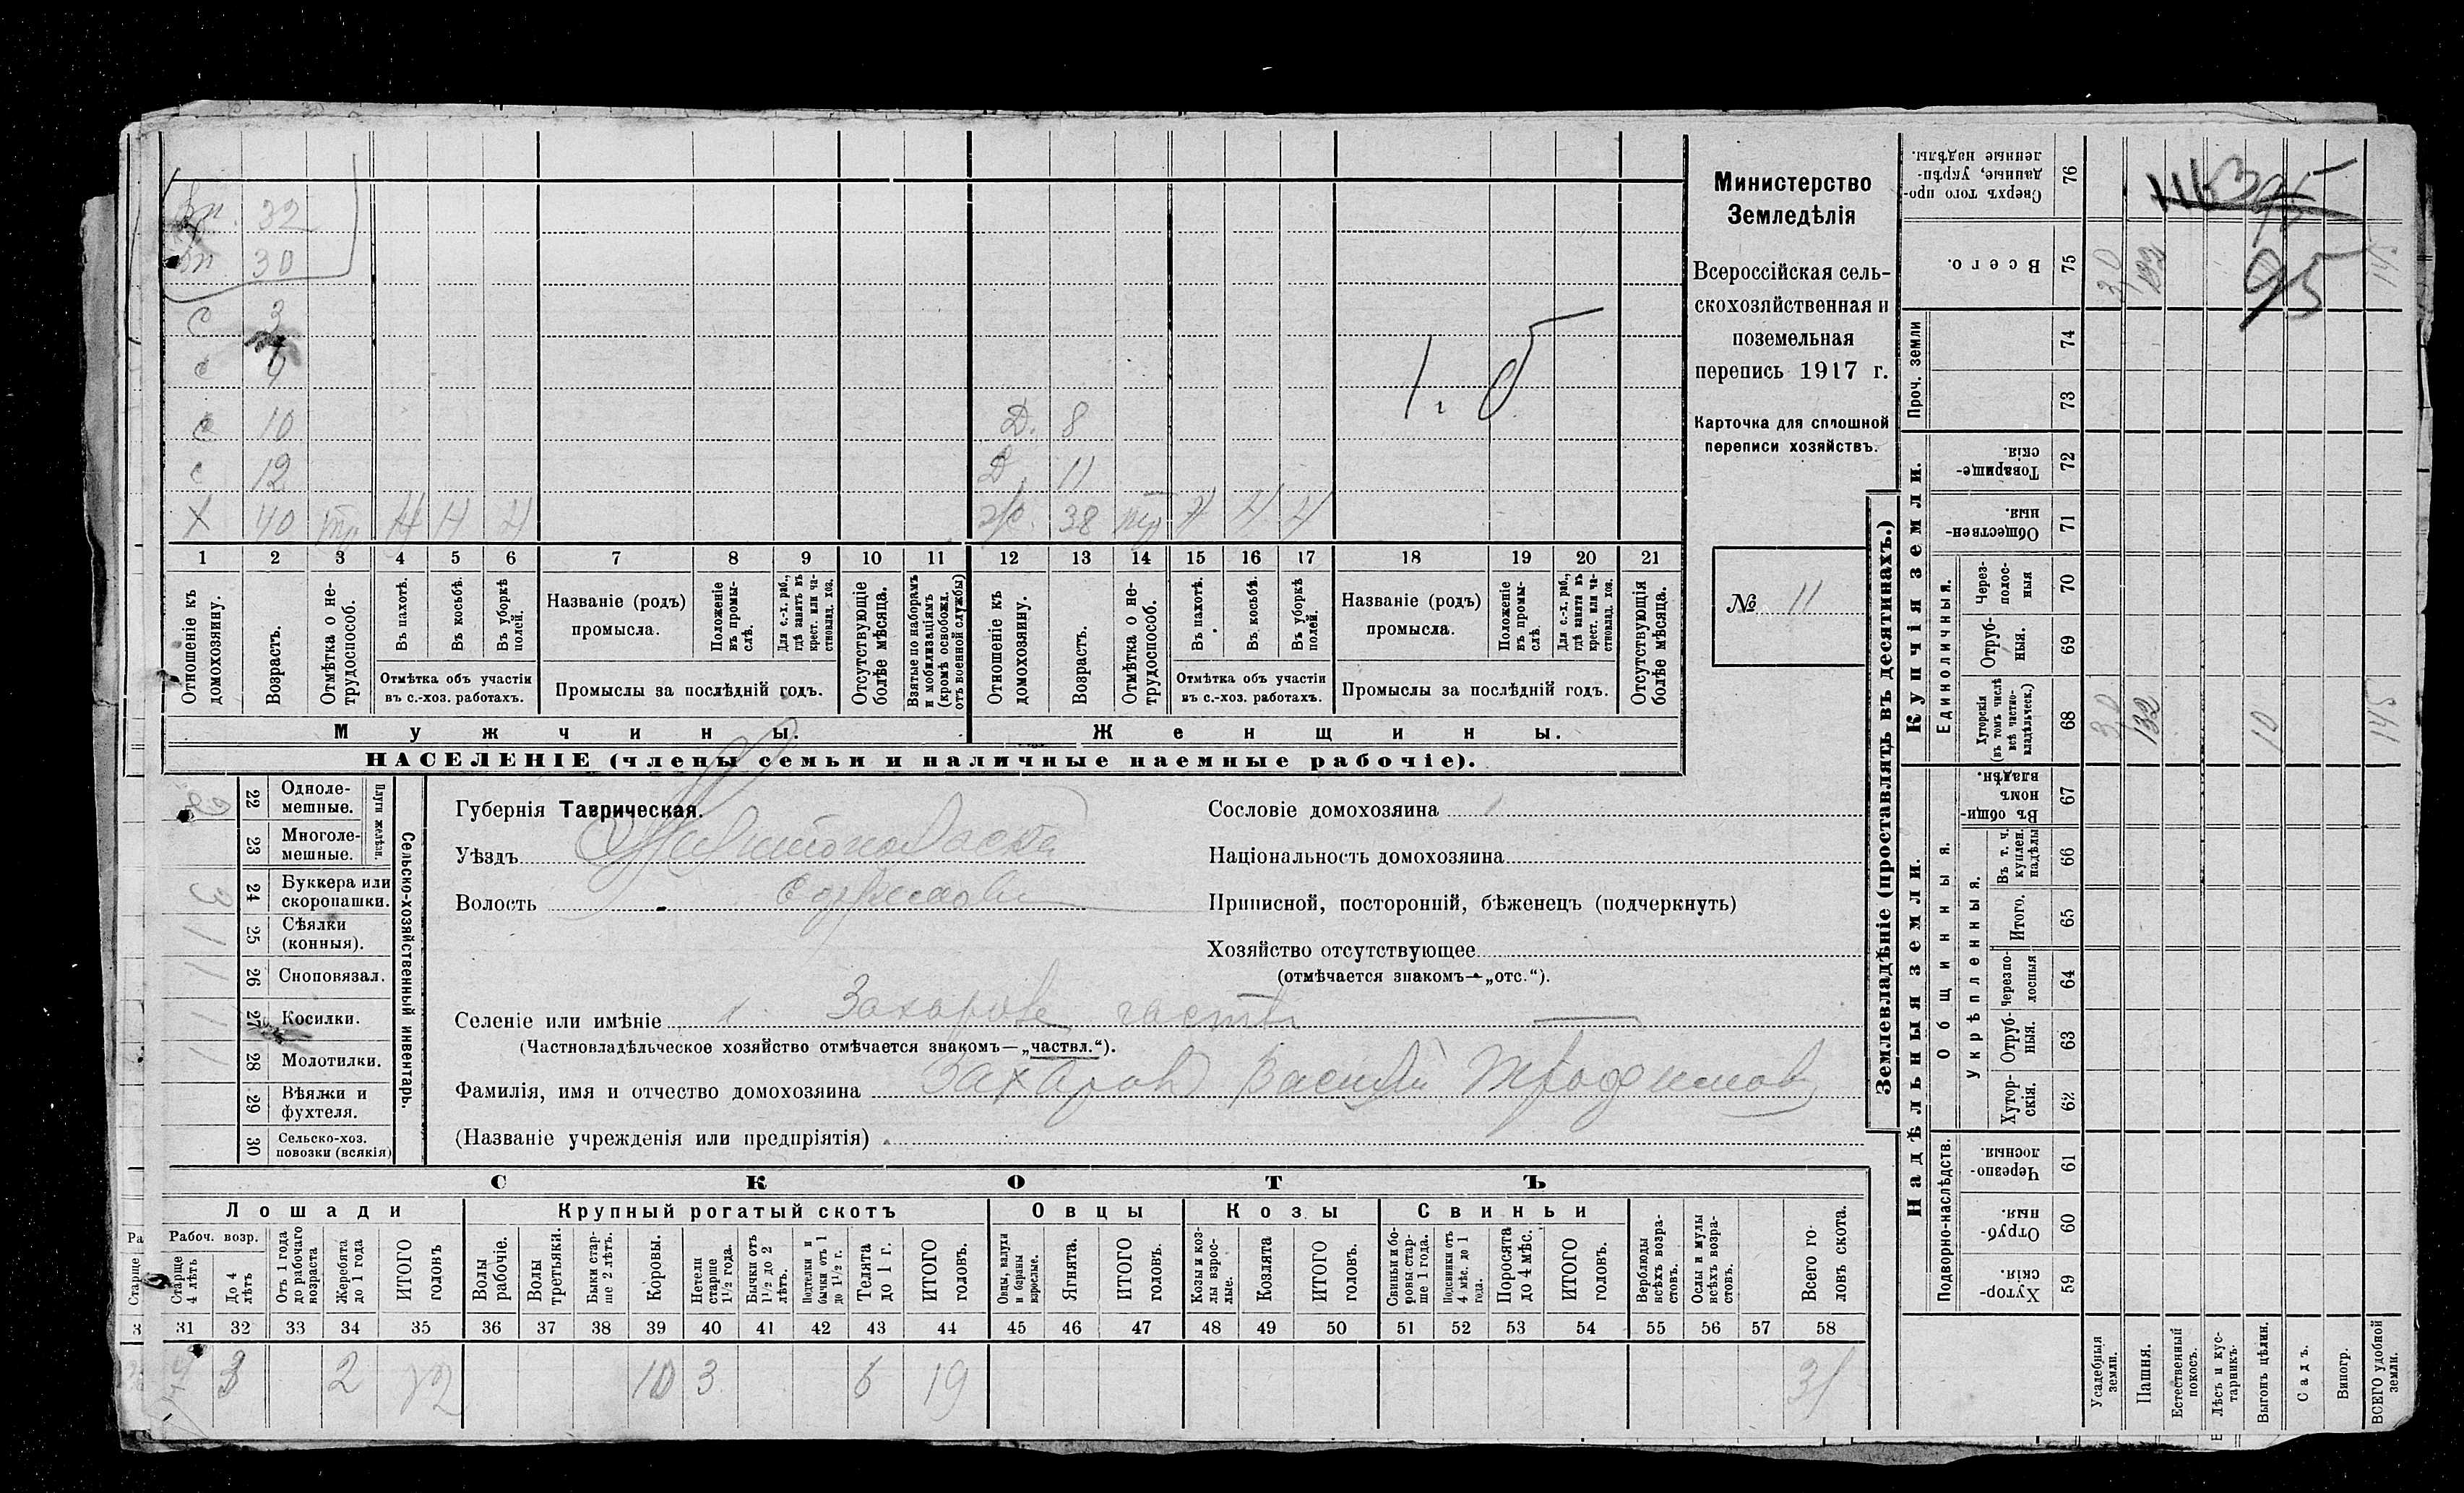 Министерство
Земледѣлія
Всероссійская сель-
скохозяйственная и
поземельная
перепись 1917 г.
Карточка для сплошной
переписи хозяйствъ.
№ 11
32
30
С 3
с
с 10
с 12
Х 40
Д. 8
Д 11
38
1. б
1 2 3 4 5 6 7 8 9 10 11 12 13 14 15 16 17 18 19 20 21
Отношеніе къ домохозяину.
Возрастъ.
Отмѣтка о не-трудоспособ.
Въ пахотѣ.
Въ косьбѣ.
Въ уборкѣ полей.
Отмѣтка объ участіи
въ с.-хоз. работахъ.
Названіе (родъ)
промысла.
Положеніе въ промы-слѣ.
Для с.-х. раб., гдѣ занятъ въ крест. или ча-стновлад. хоз.
Промыслы за послѣдній годъ.
Отсутствующіе болѣе мѣсяца.
Взятые по наборамъ и мобилизаціямъ (кромѣ освобожд. отъ военной службы)
Отношеніе къ домохозяину.
Возрастъ.
Отмѣтка о не-трудоспособ.
Въ пахотѣ.
Въ косьбѣ.
Въ уборкѣ полей.
Отмѣтка объ участіи
въ с.-хоз. работахъ.
Названіе (родъ)
промысла.
Положеніе въ промы-слѣ.
Для с.-х. раб., гдѣ занята въ крест. или ча-стновлад. хоз.
Промыслы за послѣдній годъ.
Отсутствующія болѣе мѣсяца.
Мужчины.
Женщины.
НАСЕЛЕНІЕ (члены семьи и наличные наемные рабочіе).
22 Однолемешные.
23 Многолемешные.
Плуги желѣзн.
24 Буккера или скоропашки. 3
25 Сѣялки (конныя). 1
26 Сноповязал. 1
27 Косилки. 1
28 Молотилки. 1
29 Вѣялки и фухтеля.
30 Сельско-хоз. повозки (всякія)
Сельско-хозяйственный инвентарь.
Губернія Таврическая.
Уѣздъ
Волость
Сословіе домохозяина
Національность домохозяина
Приписной, посторонній, бѣженецъ (подчеркнуть)
Хозяйство отсутствующее
(отмѣчается знакомъ—„отс.“).
Селеніе или имѣніе
(Частновладѣльческое хозяйство отмѣчается знакомъ—„частвл.“).
Фамилія, имя и отчество домохозяина Захаров Василій Трофимов
(Названіе учрежденія или предпріятія)
СКОТЪ
Лошади
Крупный рогатый скотъ
Овцы
Козы
Свиньи
Рабоч. возр.
Старше 4 лѣтъ
До 4 лѣтъ
Отъ 1 года до рабочаго возраста
Жеребята до 1 года
ИТОГО головъ
Волы рабочіе.
Волы третьяки.
Быки стар-ше 2 лѣтъ.
Коровы.
Нетели старше 1½ года.
Бычки отъ 1½ до 2 лѣтъ.
Подтелки и бычки отъ 1 до 1½ г.
Телята до 1 г.
ИТОГО головъ.
Овцы, валухи и бараны взрослые.
Ягнята.
ИТОГО головъ.
Козы и коз-лы взрос-лые.
Козлята
ИТОГО головъ.
Свиньи и бо-ровы стар-ше 1 года.
Подсвинки отъ 4 мѣс. до 1 года.
Поросята до 4 мѣс.
ИТОГО головъ.
Верблюды всѣхъ возра-стовъ.
Ослы и мулы всѣхъ возра-стовъ.
Всего го-ловъ скота.
31 32 33 34 35 36 37 38 39 40 41 42 43 44 45 46 47 48 49 50 51 52 53 54 55 56 57 58
3 2 10 3 6 19 31
Землевладѣніе (проставлять въ десятинахъ.)
Сверхъ того про-данные, укрѣп-ленные надѣлы. 76
Всего. 75
Проч. земли 74 73
Купчія земли.
Товарище-скія. 72
Обществен-ныя. 71
Единоличныя.
Черезполос-ныя 70
Отруб-ныя. 69
Хуторскія (въ томъ числѣ всѣ частно-владѣльческ.) 68
Надѣльныя земли.
Общинныя.
Въ общи-номъ владѣн. 67
Укрѣпленныя.
Въ т. ч. куплен. надѣлы 66
Итого. 65
Черезпо-лосныя 64
Отруб-ныя. 63
Хутор-скія. 62
Подворно-наслѣдств.
Черезпо-лосныя. 61
Отруб-ныя. 60
Хутор-скія. 59
Усадебныя земли.
Пашня.
Естественный покосъ.
Лѣсъ и кус-тарникъ.
Выгонъ цѣлин.
Садъ.
Виногр.
ВСЕГО удобной земли.
3,0 132 95
3,0 132 10 145